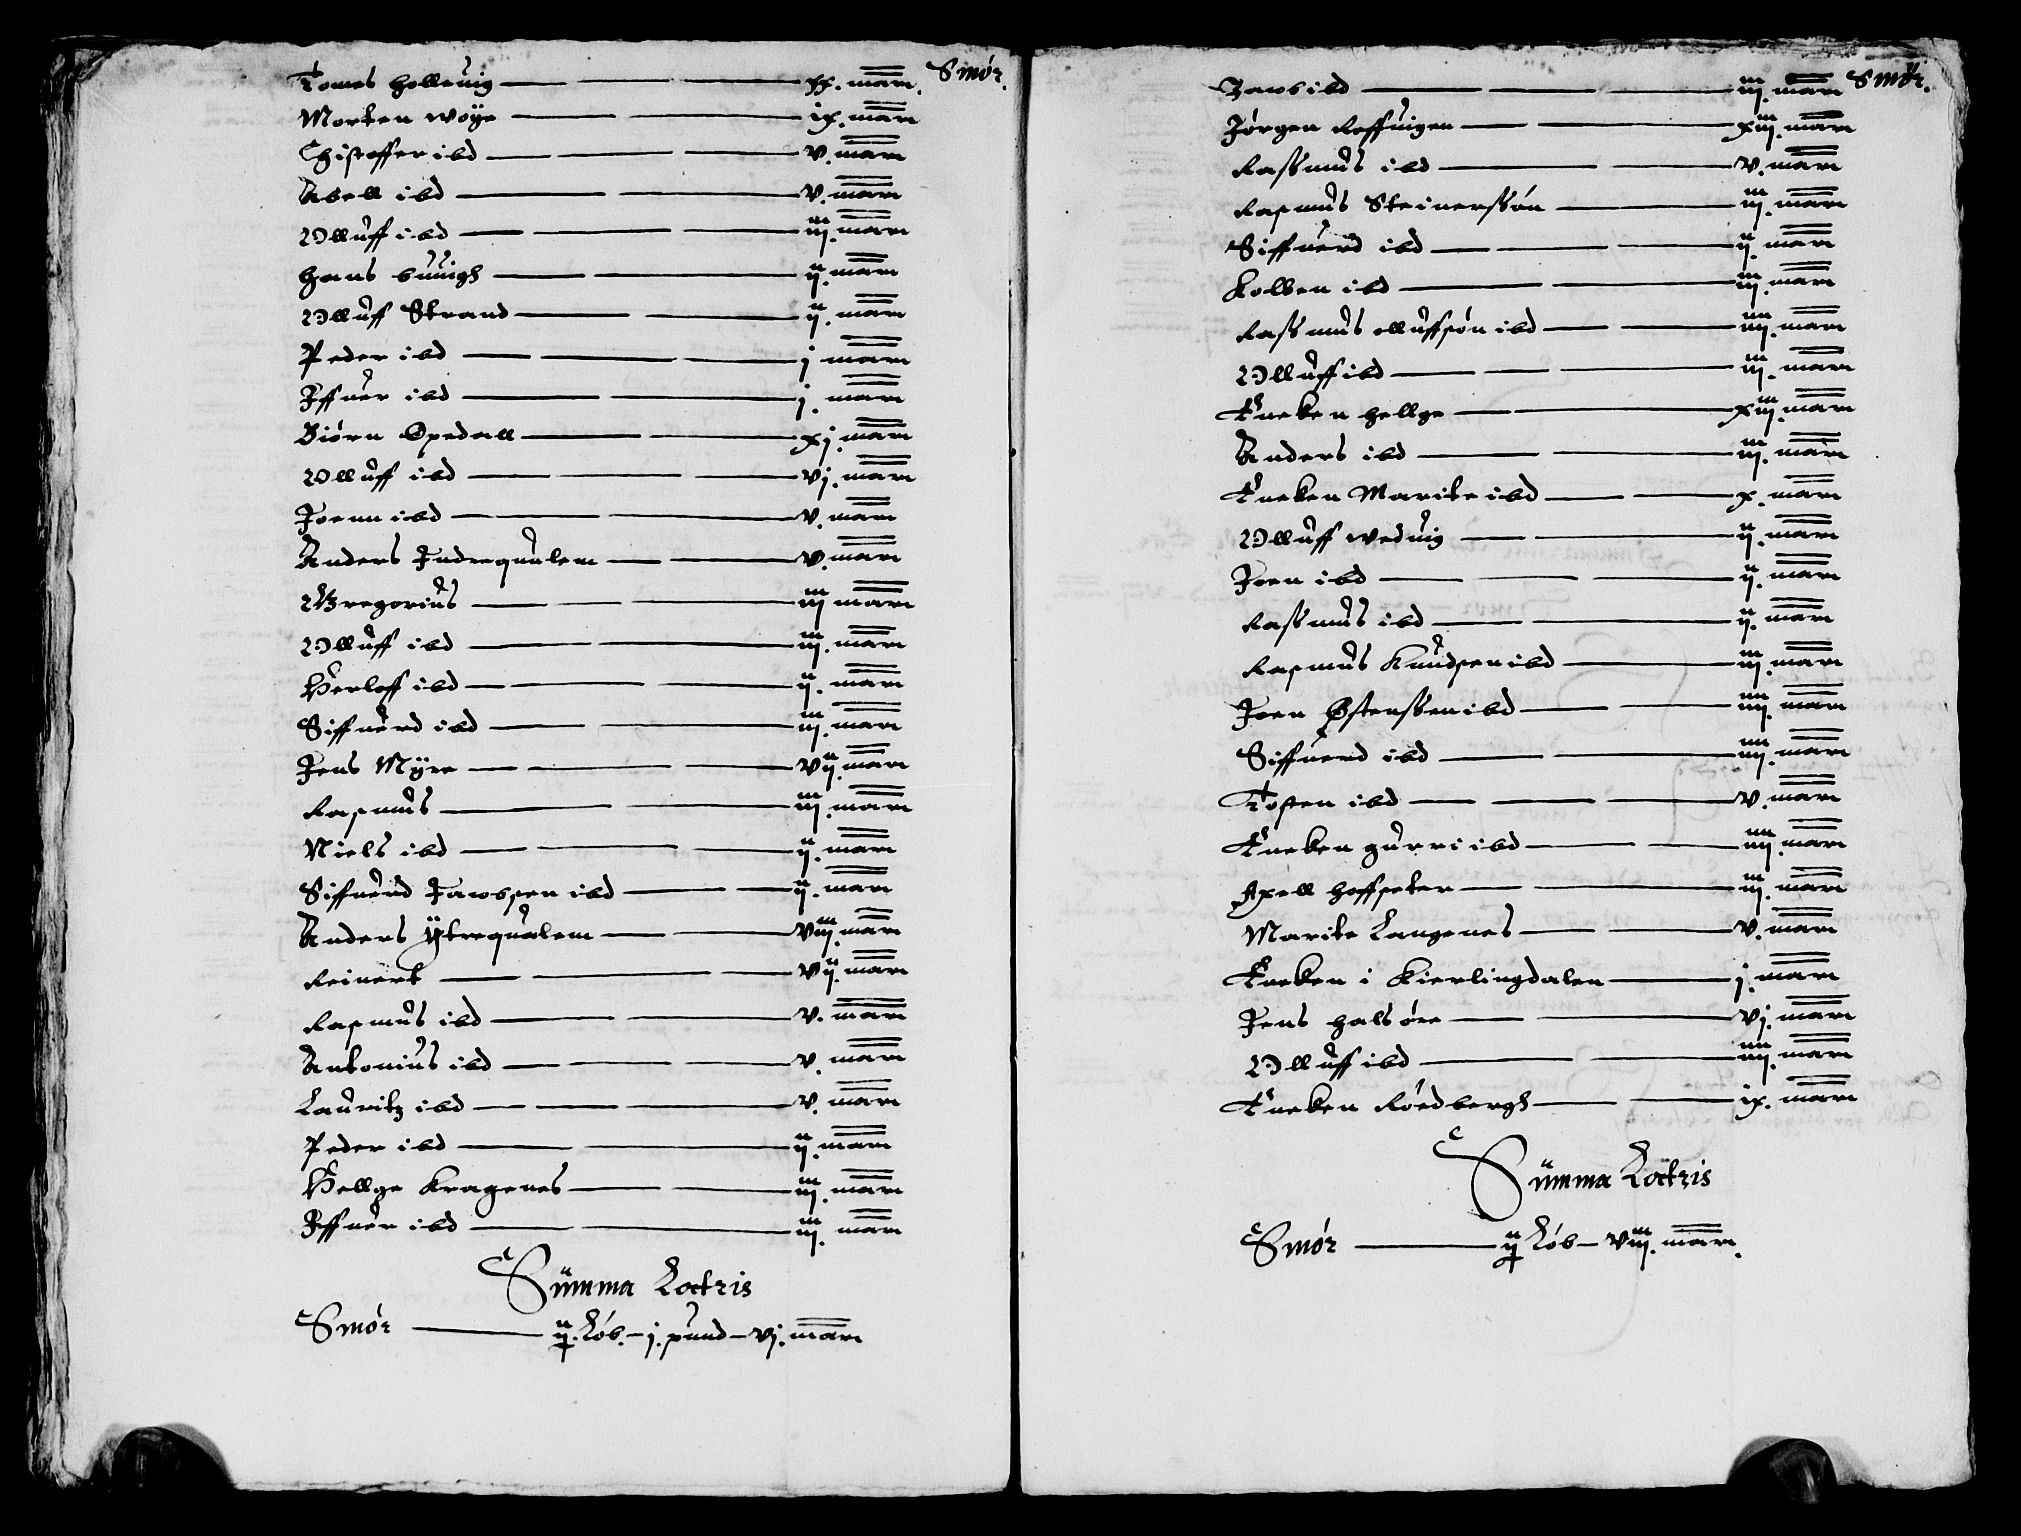 Tomes Hollevig — xx. mark Smör.
Morten Woye — ix. mark
Chistoffer ibd — v. mark
Abell ibd — v. mark
Olluff ibd — iij. mark
Hans — ij. mark
Olluff Strand — ij. mark
Peder ibd — j mark
Iffuer ibd — j. mark
Biörn Opedall — xj. mark
Olluff ibd — vj. mark
Joenn ibd — v. mark
Anders Indrequalem — v. mark
Gregorius — iij mark
Olluff ibd — iij. mark
Herloff ibd — ij. mark
Siffuerd ibd — iij. mark
Jens Myre — vij. mark
Rasmus — iij. mark
Niels ibd — ij. mark
Siffuerd Jacobsen ibd — ij. mark
Anders Ytrequalem — viij. mark
Reinert — vij. mark
Rasmus ibd — v. mark
Antonius ibd — v. mark
Lauritz ibd — v. mark
Peder ibd — ij. mark
Hellge Kragenes — iij. mark
Iffuer ibd — iij. mark
Summa Lateris
Smör — ij. Löb. – j. pund – vj. mark
Jacob ibd — iij. mark Smör.
Jörgen Reffuigen — xiij. mark
Rassmus ibd — v. mark
Rasmus Steinerssön — iij. mark
Siffuerd ibd — ij. mark
Kolben ibd — iij. mark
Rassmus olluffsön ibd — iiij. mark
Olluff ibd — iij. mark
Encken Hellge — xiij. mark
Anders ibd — iij. mark
Encken Marite ibd — x. mark
Olluff Weduig — ij. mark
Joen ibd — ij. mark
Rassmus ibd — ij. mark
Rasmus Knudsen ibd — iij. mark
Joen Østenssen ibd — iiij. mark
Siffuerd ibd — iiij. mark
Tosten ibd — v. mark
Encken gurri ibd — iiij. mark
Axell Hoffseter — iij. mark
Marite Langenes — v. mark
Encken i Kierlingdalen — j. mark
Jens Halsöre — vj. mark
Olluff ibd — iiij. mark
Encken Rödbergh — ix. mark
Summa Lateris
Smör — ij Löb – viij. mark.